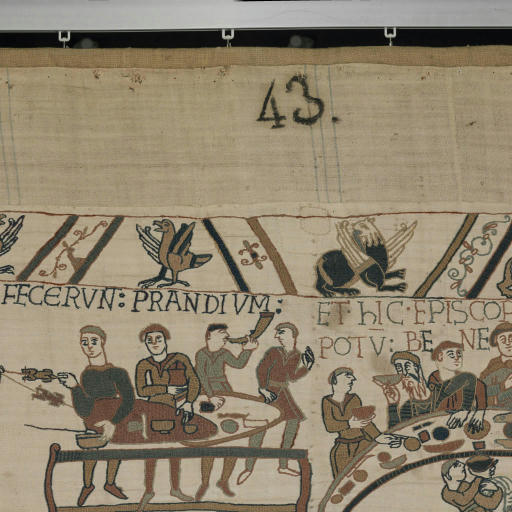 43.
FECERVN: PRANDIVM:
ET hIC·EPISCOP
POTV̄: BE NE